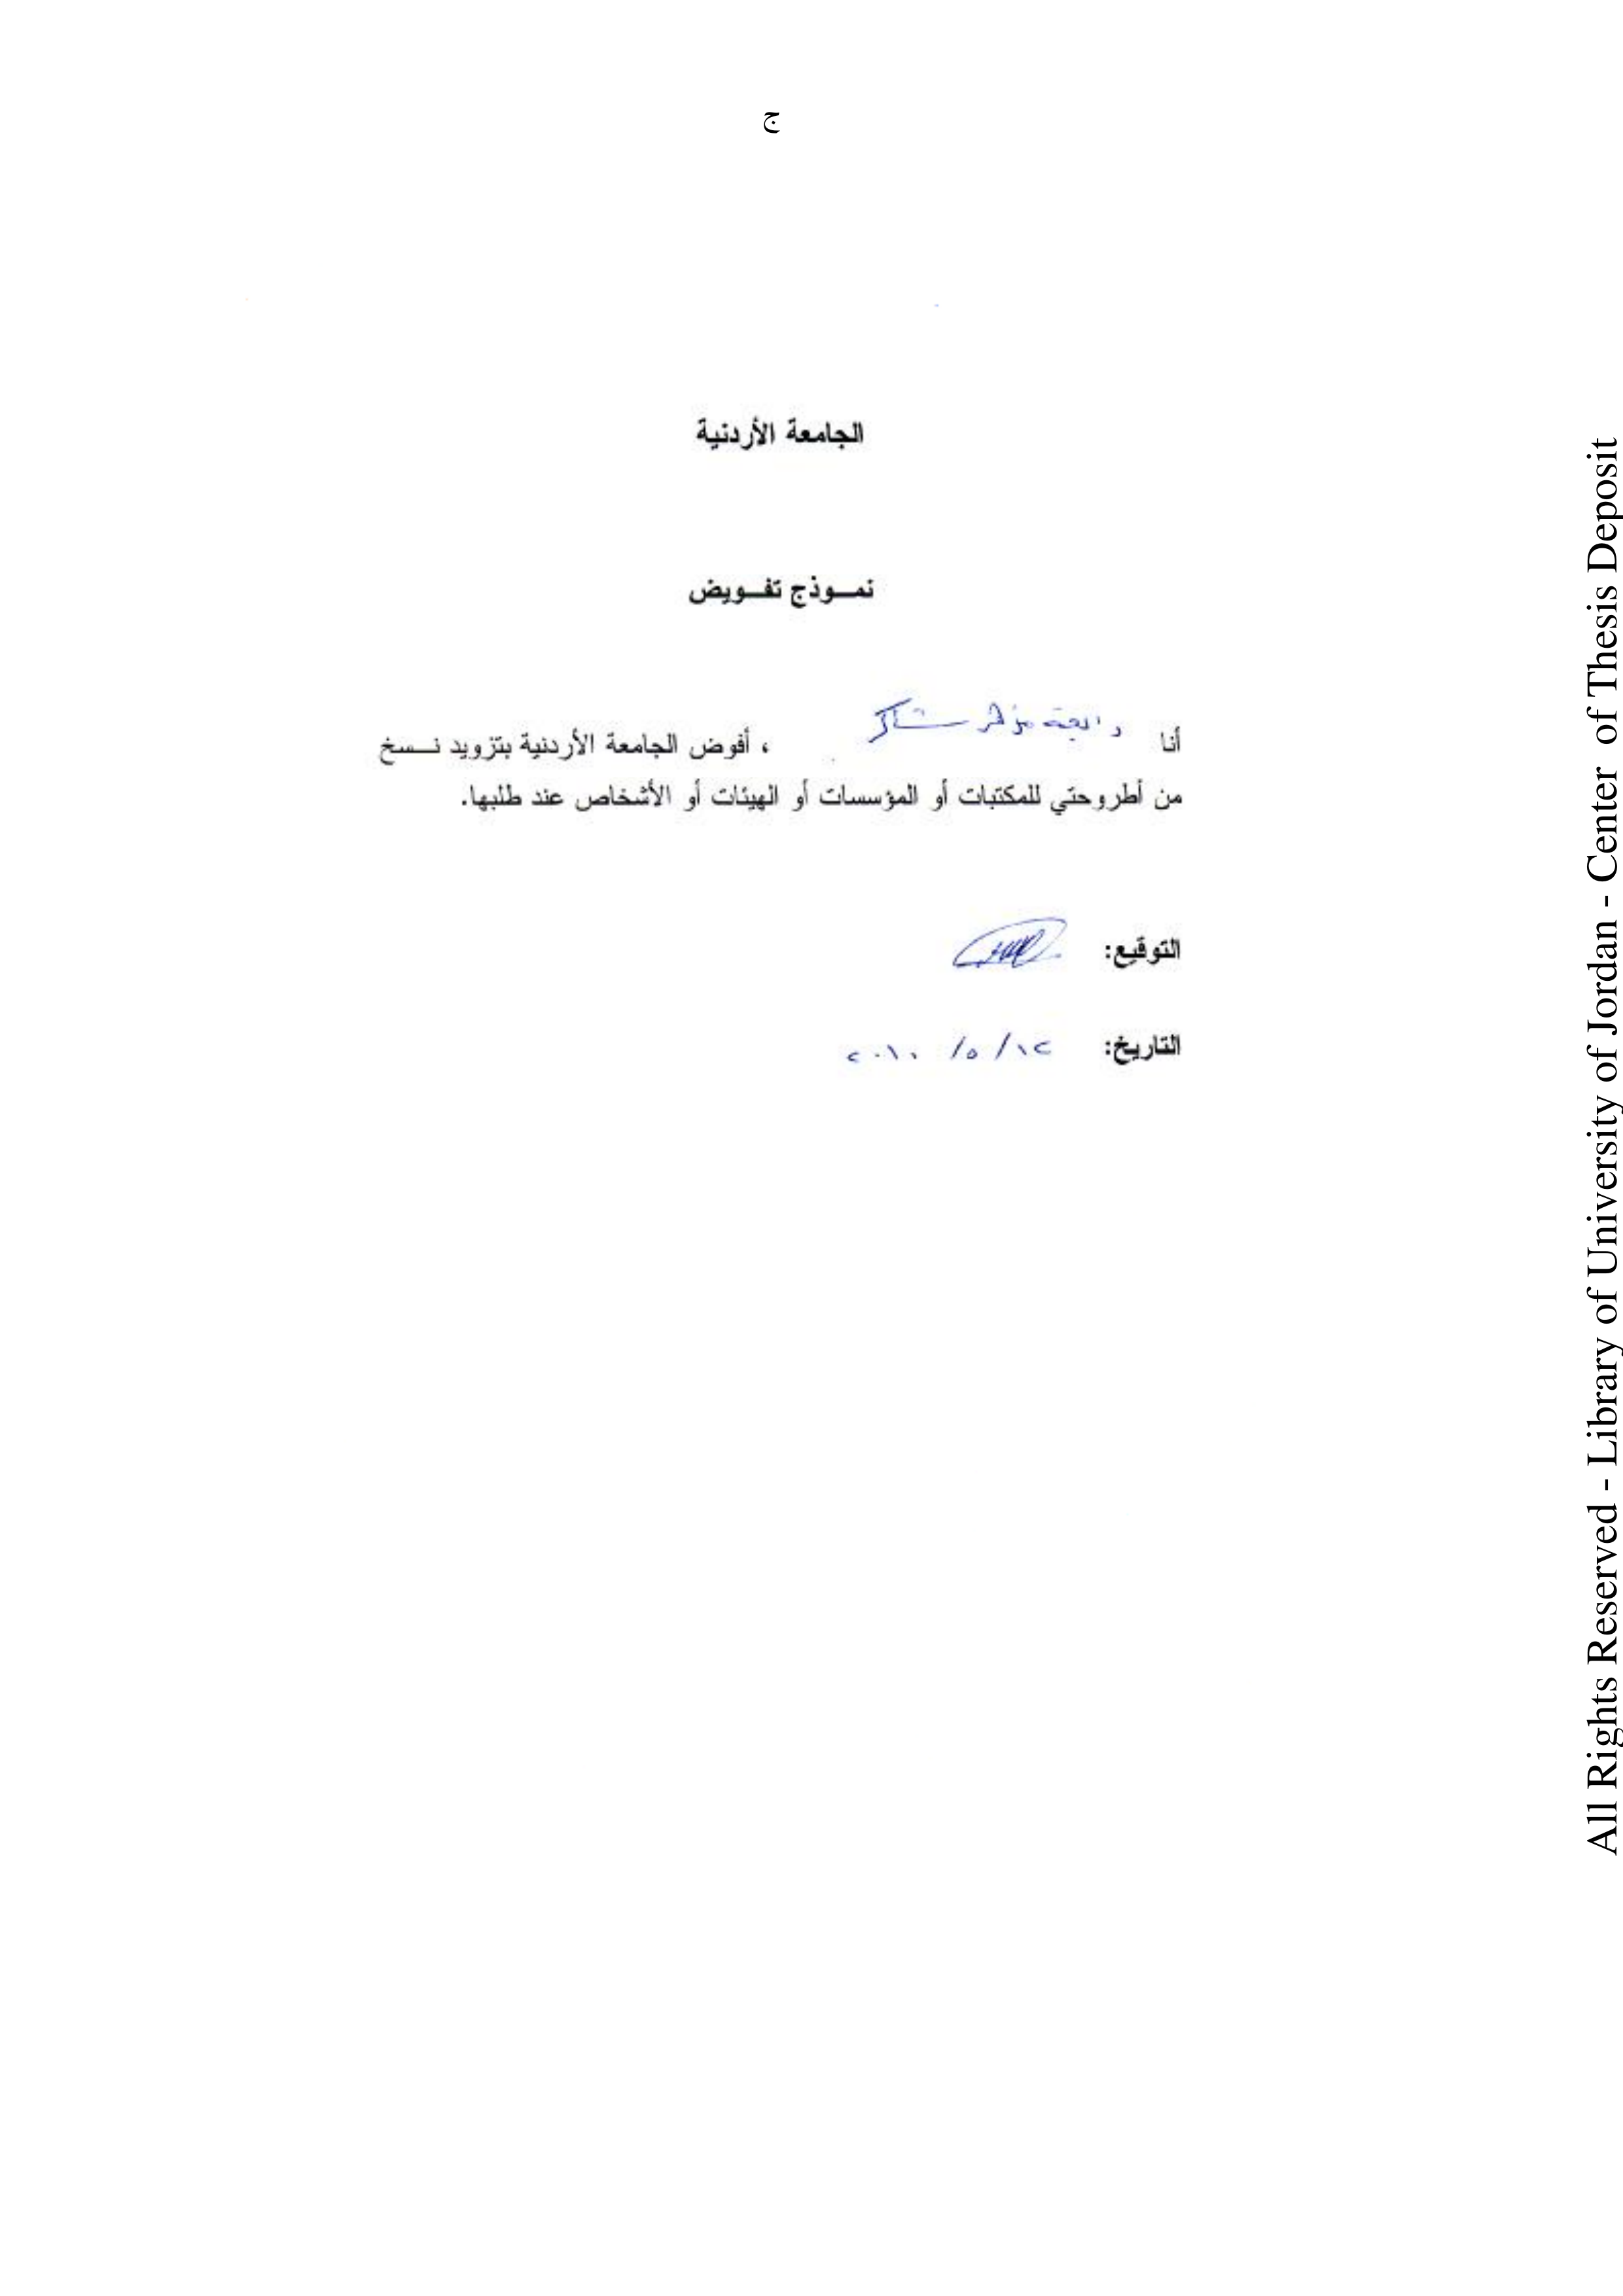 ج
الجامعة الأردنية
نمـوذج تفـويض
أنا مزهر شاكر ، أفوض الجامعة الأردنية بتزويد نـسخ
من أطروحتي للمكتبات أو المؤسسات أو الهيئات أو الأشخاص عند طلبها.
التوقيع:
التاريخ: ١٢/ ٥/ ٢٠١٠
All Rights Reserved - Library of University of Jordan - Center of Thesis Deposit